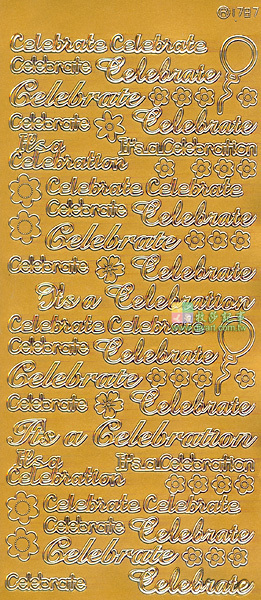 1787
Celebrate Celebrate
Celebrate Celebrate
Celebrate
Celebrate Celebrate
It's a
Celebration It's a Celebration
Celebrate Celebrate
Celebrate Celebrate
Celebrate
Celebrate Celebrate
It's a Celebration
Celebrate Celebrate
Celebrate Celebrate
Celebrate
Celebrate Celebrate
It's a Celebration
It's a
Celebration It's a Celebration
Celebrate Celebrate
Celebrate Celebrate
Celebrate
Celebrate Celebrate